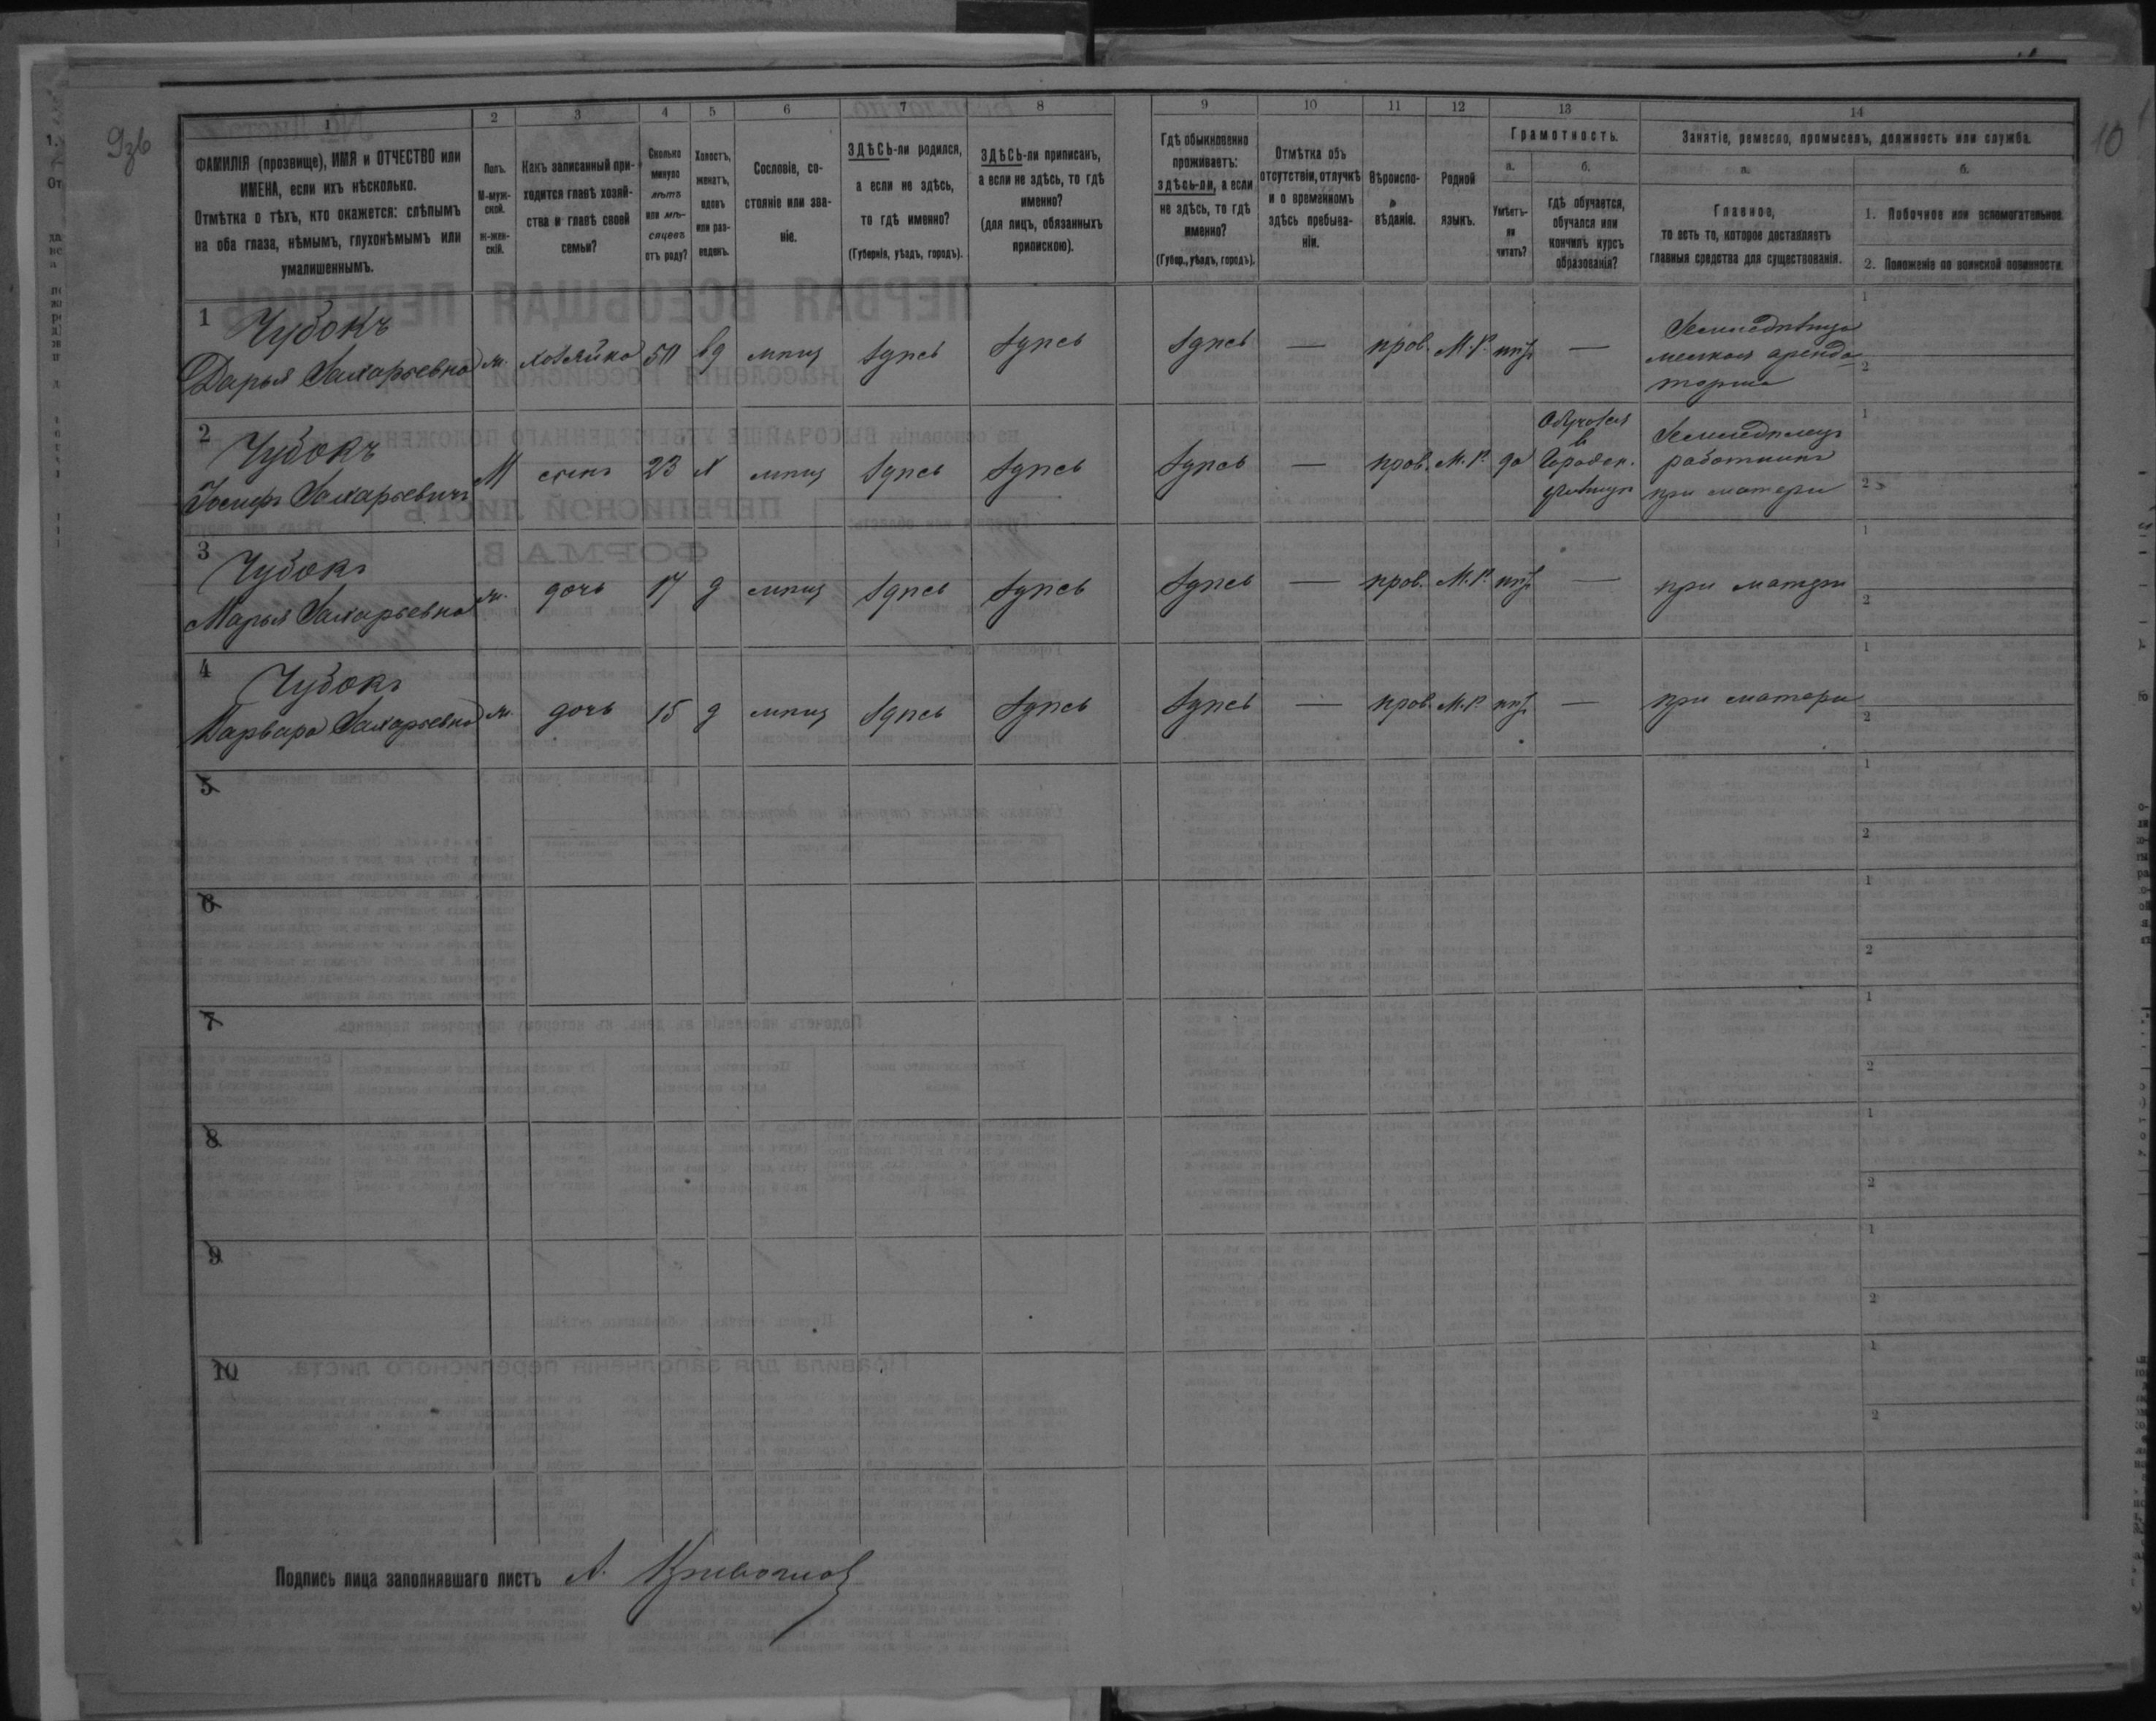 9зв
10
1 2 3 4 5 6 7 8 9 10 11 12 13 14
ФАМИЛІЯ (прозвище), ИМЯ и ОТЧЕСТВО или
ИМЕНА, если ихъ нѣсколько.
Отмѣтка о тѣхъ, кто окажется: слѣпымъ
на оба глаза, нѣмымъ, глухонѣмымъ или
умалишеннымъ.
Полъ.
М-муж-
ской.
Ж-жен-
скій.
Какъ записанный при-
ходится главѣ хозяй-
ства и главѣ своей
семьи?
Сколько
минуло
лѣтъ
или мѣ-
сяцевъ
отъ роду?
Холостъ,
женатъ,
вдовъ
или раз-
веденъ.
Сословіе, со-
стояніе или зва-
ніе.
ЗДѢСЬ-ли родился,
а если не здѣсь,
то гдѣ именно?
(Губернія, уѣздъ, городъ).
ЗДѢСЬ-ли приписанъ,
а если не здѣсь, то гдѣ
именно?
(для лицъ, обязанныхъ
припискою).
Гдѣ обыкновенно
проживаетъ:
здѣсь-ли, а если
не здѣсь, то гдѣ
именно?
(Губер., уѣздъ, городъ).
Отмѣтка объ
отсутствіи, отлучкѣ
и о временномъ
здѣсь пребыва-
ніи.
Вѣроиспо-
вѣданіе.
Родной
языкъ.
Грамотность.
а.
Умѣетъ-
ли
читать?
б.
Гдѣ обучается,
обучался или
кончилъ курсъ
образованія?
Занятіе, ремесло, промыселъ, должность или служба.
а.
Главное,
то есть то, которое доставляетъ
главныя средства для существованія.
б.
1. Побочное или вспомогательное.
2. Положеніе по воинской повинности.
1 Чубокъ
Дарья Захарьевна ж. хозяйка 50 вд мѣщ здѣсь здѣсь здѣсь — прав. М.Р. нѣт —
Земледѣлица
мелкая аренда-
торша
1
2
2 Чубокъ
Іосифъ Захарьевичъ М сынъ 23 х мѣщ здѣсь здѣсь здѣсь — прав. М.Р. да
Обучался
в
Городск.
училищѣ
Земледѣлецъ
работникъ
при матери
1
2
3 Чубокъ
Марья Захарьевна ж. дочь 17 д мѣщ здѣсь здѣсь здѣсь — прав. М.Р. нѣт — при матери
1
2
4 Чубокъ
Варвара Захарьевна ж. дочь 15 д мѣщ здѣсь здѣсь здѣсь — прав. М.Р. нѣт — при матери
1
2
5
1
2
6
1
2
7
1
2
8
1
2
9
1
2
10
1
2
Подпись лица заполнявшаго листъ А.